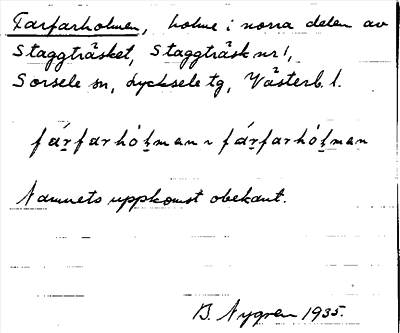 Farfarholmen, holme i norra delen av
Staggträsket, Staggträsk nr 1,
Sorsele sn, Lycksele tg, Västerb. l.
fárfarhòlman ~ fárfarhòlman
Namnets uppkomst obekant.
B. Nygren 1935.